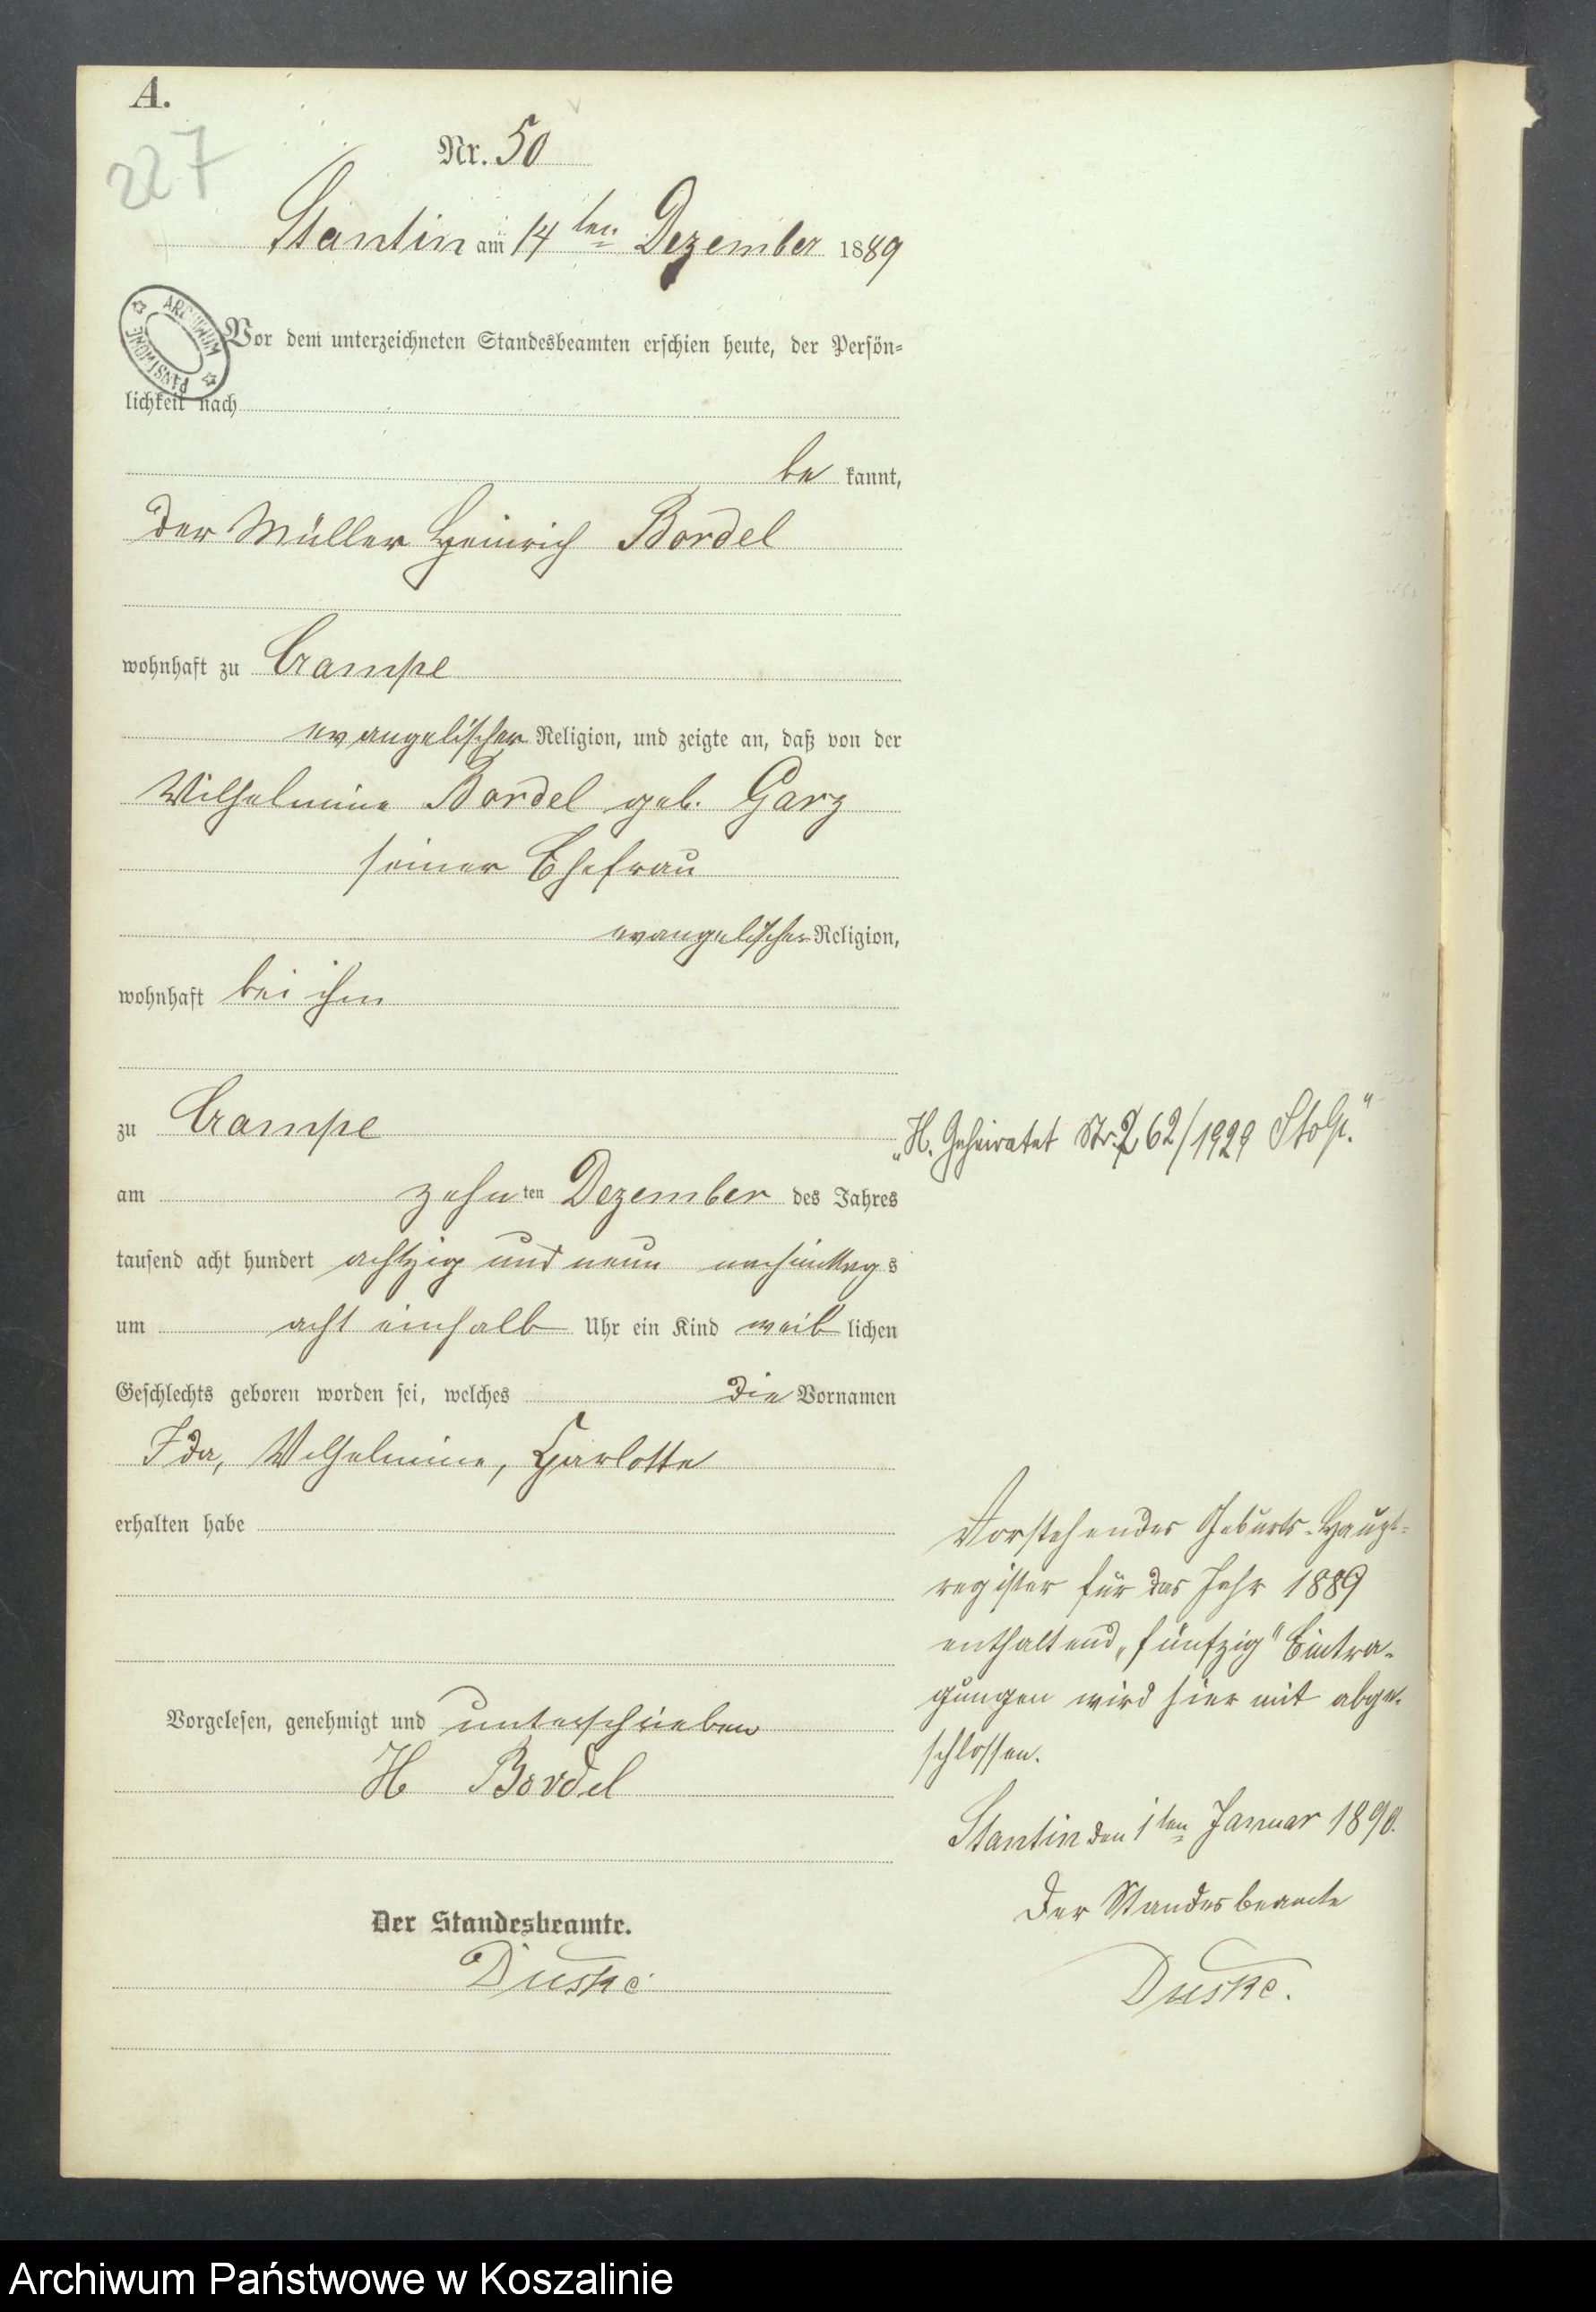 A.
227
Nr. 50
Stantin am 14ten Dezember 1889
ARCHIWUM PAŃSTWOWE
Vor dem unterzeichneten Standesbeamten erschien heute, der Persön-
lichkeit nach
be kannt,
der Müller Heinrich Bordel
wohnhaft zu Crampe
evangelischer Religion, und zeigte an, daß von der
Wilhelmine Bordel geb. Garz
seiner Ehefrau
evangelischer Religion,
wohnhaft bei ihm
zu Crampe
am zehn ten Dezember des Jahres
tausend acht hundert achtzig und neun nachmittags
um acht einhalb Uhr ein Kind weib lichen
Geschlechts geboren worden sei, welches die Vornamen
Ida, Wilhelmine, Harlotte
erhalten habe
Vorgelesen, genehmigt und unterschrieben
H Bordel
Der Standesbeamte.
Duske
„H. Geheiratet 62/1929 Stolp."
Vorstehendes Geburts-Haupt-
register für das Jahr 1889
enthaltend „fünfzig" Eintra-
gungen wird hiermit abge-
schlossen.
Stantin den 1ten Januar 1890.
Der Standesbeamte
Duske.
Archiwum Państwowe w Koszalinie